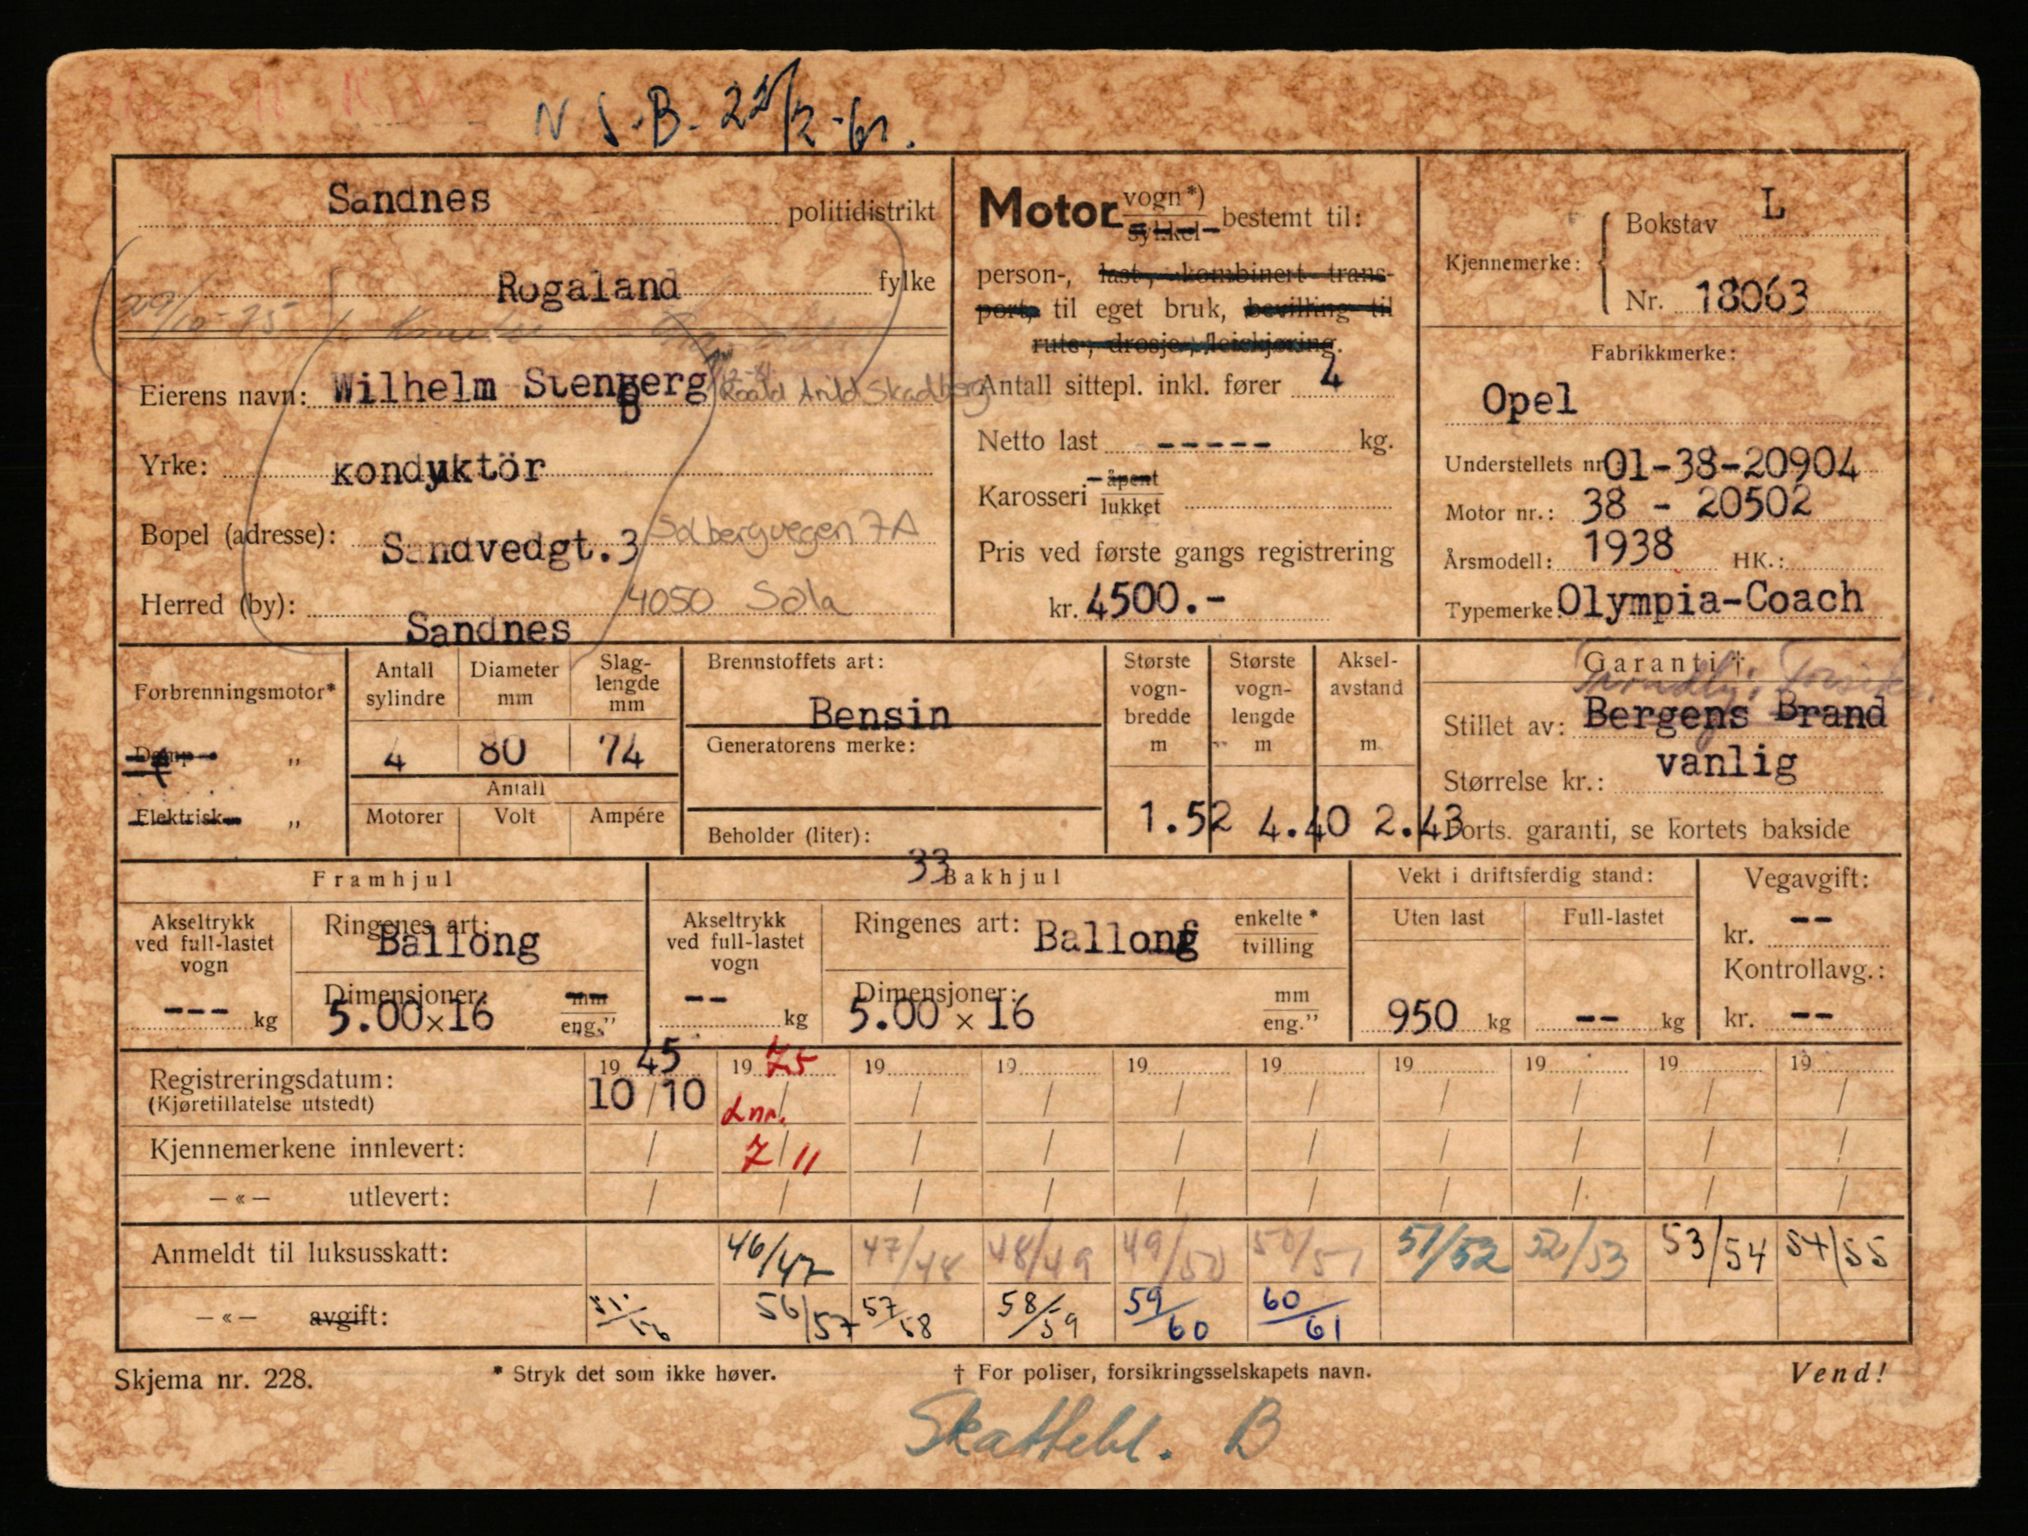 N.S.B. 22/2-61.
Sandnes politidistrikt
Rogaland fylke
29/10-75
Eierens navn: Wilhelm Stenberg Roald Arild Skadberg
Yrke: konduktör
Bopel (adresse): Sandvedgt.3 Solbergvegen 7A
Herred (by): Sandnes 4050 Sola
Motor vogn*) sykkel bestemt til:
person-, last-, kombinert trans-
port, til eget bruk, bevilling til
rute-, drosje-, leiekjøring.
Antall sittepl. inkl. fører 4
Netto last ----- kg.
Karosseri åpent lukket
Pris ved første gangs registrering
kr. 4500.-
Kjennemerke: Bokstav L
Nr. 18063
Fabrikkmerke:
Opel
Understellets nr. 01-38-20904
Motor nr.: 38 - 20502
Årsmodell: 1938 HK.:
Typemerke: Olympia-Coach
Forbrenningsmotor*
Damp- „
Elektrisk- „
Antall sylindre 4
Diameter mm 80
Slag-lengde mm 74
Antall
Motorer Volt Ampére
Brennstoffets art:
Bensin
Generatorens merke:
Beholder (liter):
33
Største vogn-bredde m 1.52
Største vogn-lengde m 4.40
Aksel-avstand m 2.43
Garanti †
Stillet av: Bergens Brand
Størrelse kr.: vanlig
Forts. garanti, se kortets bakside
Framhjul
Akseltrykk ved full-lastet vogn
--- kg
Ringenes art: Ballong
Dimensjoner: 5.00x16 mm eng.”
Bakhjul
Akseltrykk ved full-lastet vogn
-- kg
Ringenes art: Ballong enkelte * tvilling
Dimensjoner: 5.00 x 16 mm eng.”
Vekt i driftsferdig stand:
Uten last Full-lastet
950 kg -- kg
Vegavgift:
kr. --
Kontrollavg.:
kr. --
19 45 19 75 19 19 19 19 19 19 19 19
Registreringsdatum: 10/10 Lnr. / / / / / / / / /
(Kjøretillatelse utstedt)
Kjennemerkene innlevert: / 7/11 / / / / / / / /
— « — utlevert: / / / / / / / / / /
Anmeldt til luksusskatt: 46/47 47/48 48/49 49/50 50/51 51/52 52/53 53/54 54/55
— « — avgift: 56/57 57/58 58/59 59/60 60/61
Skjema nr. 228.
* Stryk det som ikke høver.
† For poliser, forsikringsselskapets navn.
Vend!
Skattebl. B